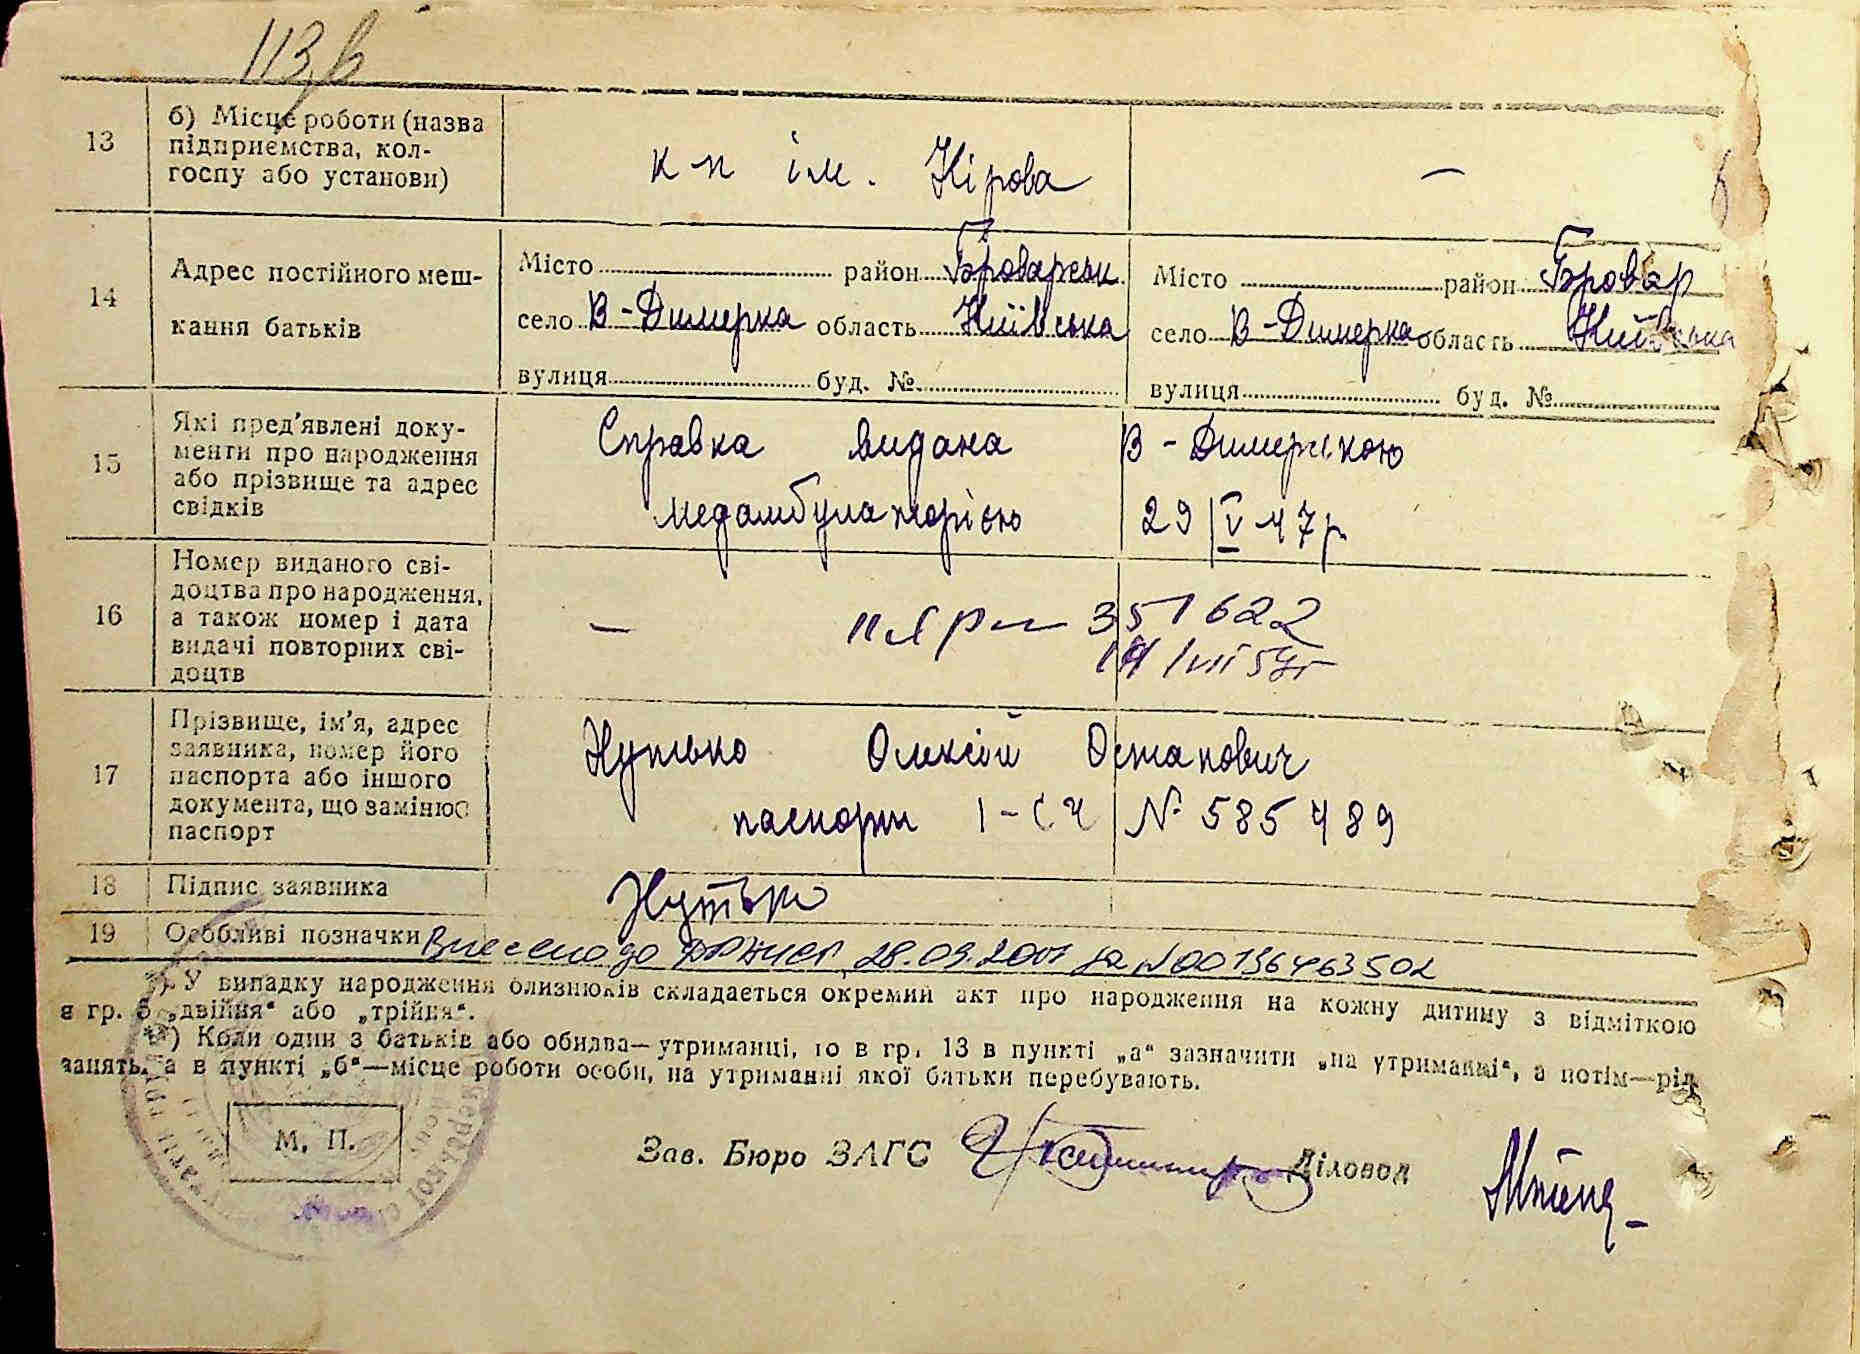 113 в
13 б) Місце роботи (назва підприємства, колгоспу або установи) к-п ім. Кірова —
14 Адрес постійного мешкання батьків
Місто район Броварськ Місто район Бровар
село В-Димерка область Київська село В-Димерка область Київська
вулиця буд. № вулиця буд. №
15 Які пред'явлені документи про народження або прізвище та адрес свідків
Справка видана В-Димерською
медамбулаторією 29/V 47р
16 Номер виданого свідоцтва про народження, а також номер і дата видачі повторних свідоцтв
— 351622
17 Прізвище, ім'я, адрес заявника, номер його паспорта або іншого документа, що замінює паспорт
Кутько Олексій Остапович
паспорт І-СЧ № 585489
18 Підпис заявника Кутько
19 Особливі позначки Внесено до 28.09.2007 за №00136463502
*) У випадку народження близнюків складається окремий акт про народження на кожну дитину з відміткою
в гр. 5 „двійня“ або „трійня“.
**) Коли один з батьків або обидва—утриманці, то в гр. 13 в пункті „а“ зазначити „на утриманні“, а потім—рід
занять, а в пункті „б“—місце роботи особи, на утриманні якої батьки перебувають.
М. П.
Зав. Бюро ЗАГС Діловод